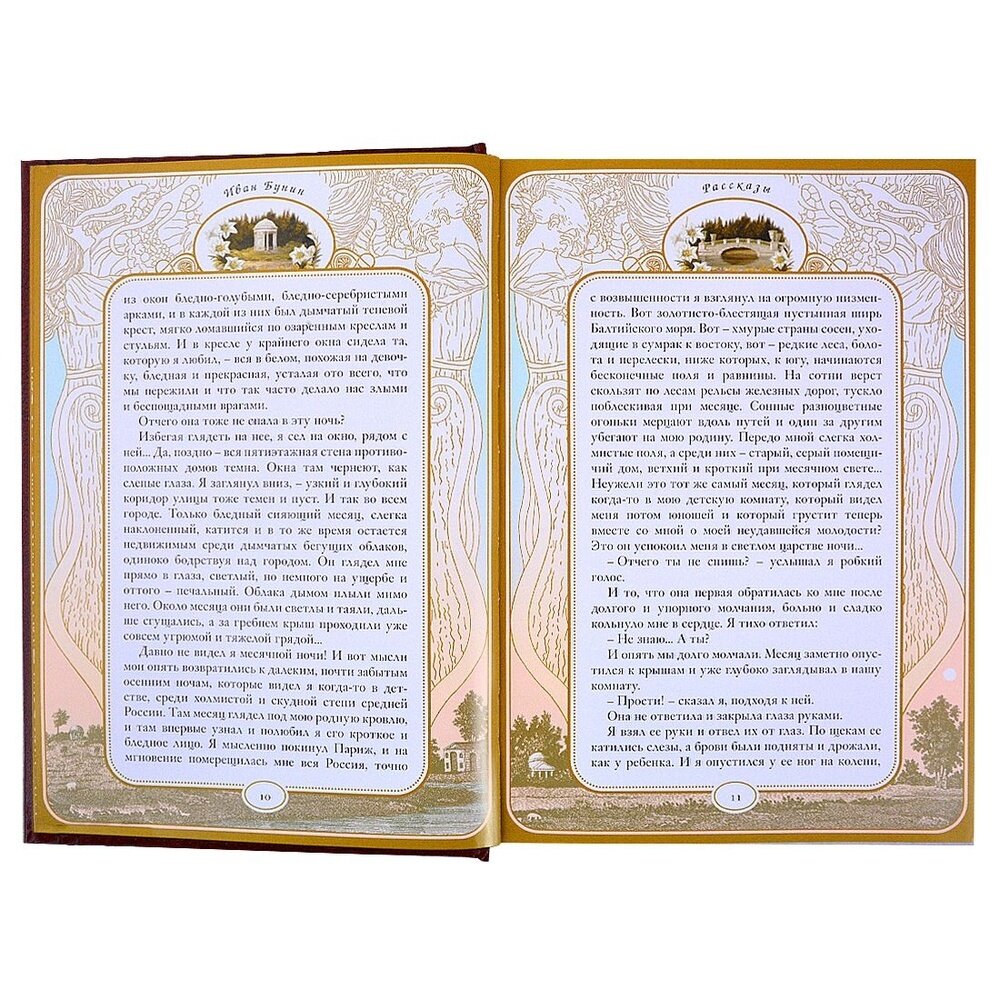 Иван Бунин
из окон бледно-голубыми, бледно-серебристыми
арками, и в каждой из них был дымчатый теневой
крест, мягко ломавшийся по озарённым креслам и
стульям. И в кресле у крайнего окна сидела та,
которую я любил, – вся в белом, похожая на девоч-
ку, бледная и прекрасная, усталая ото всего, что
мы пережили и что так часто делало нас злыми
и беспощадными врагами.
Отчего она тоже не спала в эту ночь?
Избегая глядеть на нее, я сел на окно, рядом с
ней... Да, поздно – вся пятиэтажная стена противо-
положных домов темна. Окна там чернеют, как
слепые глаза. Я заглянул вниз, – узкий и глубокий
коридор улицы тоже темен и пуст. И так во всем
городе. Только бледный сияющий месяц, слегка
наклоненный, катится и в то же время остается
недвижимым среди дымчатых бегущих облаков,
одиноко бодрствуя над городом. Он глядел мне
прямо в глаза, светлый, но немного на ущербе и
оттого – печальный. Облака дымом плыли мимо
него. Около месяца они были светлы и таяли, даль-
ше сгущались, а за гребнем крыш проходили уже
совсем угрюмой и тяжелой грядой...
Давно не видел я месячной ночи! И вот мысли
мои опять возвратились к далеким, почти забытым
осенним ночам, которые видел я когда-то в дет-
стве, среди холмистой и скудной степи средней
России. Там месяц глядел под мою родную кровлю,
и там впервые узнал и полюбил я его кроткое и
бледное лицо. Я мысленно покинул Париж, и на
мгновение померещилась мне вся Россия, точно
10
Рассказы
с возвышенности я взглянул на огромную низмен-
ность. Вот золотисто-блестящая пустынная ширь
Балтийского моря. Вот – хмурые страны сосен, ухо-
дящие в сумрак к востоку, вот – редкие леса, боло-
та и перелески, ниже которых, к югу, начинаются
бесконечные поля и равнины. На сотни верст
скользят по лесам рельсы железных дорог, тускло
поблескивая при месяце. Сонные разноцветные
огоньки мерцают вдоль путей и один за другим
убегают на мою родину. Передо мной слегка хол-
мистые поля, а среди них – старый, серый помещи-
чий дом, ветхий и кроткий при месячном свете...
Неужели это тот же самый месяц, который глядел
когда-то в мою детскую комнату, который видел
меня потом юношей и который грустит теперь
вместе со мной о моей неудавшейся молодости?
Это он успокоил меня в светлом царстве ночи...
– Отчего ты не спишь? – услышал я робкий
голос.
И то, что она первая обратилась ко мне после
долгого и упорного молчания, больно и сладко
кольнуло мне в сердце. Я тихо ответил:
– Не знаю... А ты?
И опять мы долго молчали. Месяц заметно опу-
стился к крышам и уже глубоко заглядывал в нашу
комнату.
– Прости! – сказал я, подходя к ней.
Она не ответила и закрыла глаза руками.
Я взял ее руки и отвел их от глаз. По щекам ее
катились слезы, а брови были подняты и дрожали,
как у ребенка. И я опустился у ее ног на колени,
11